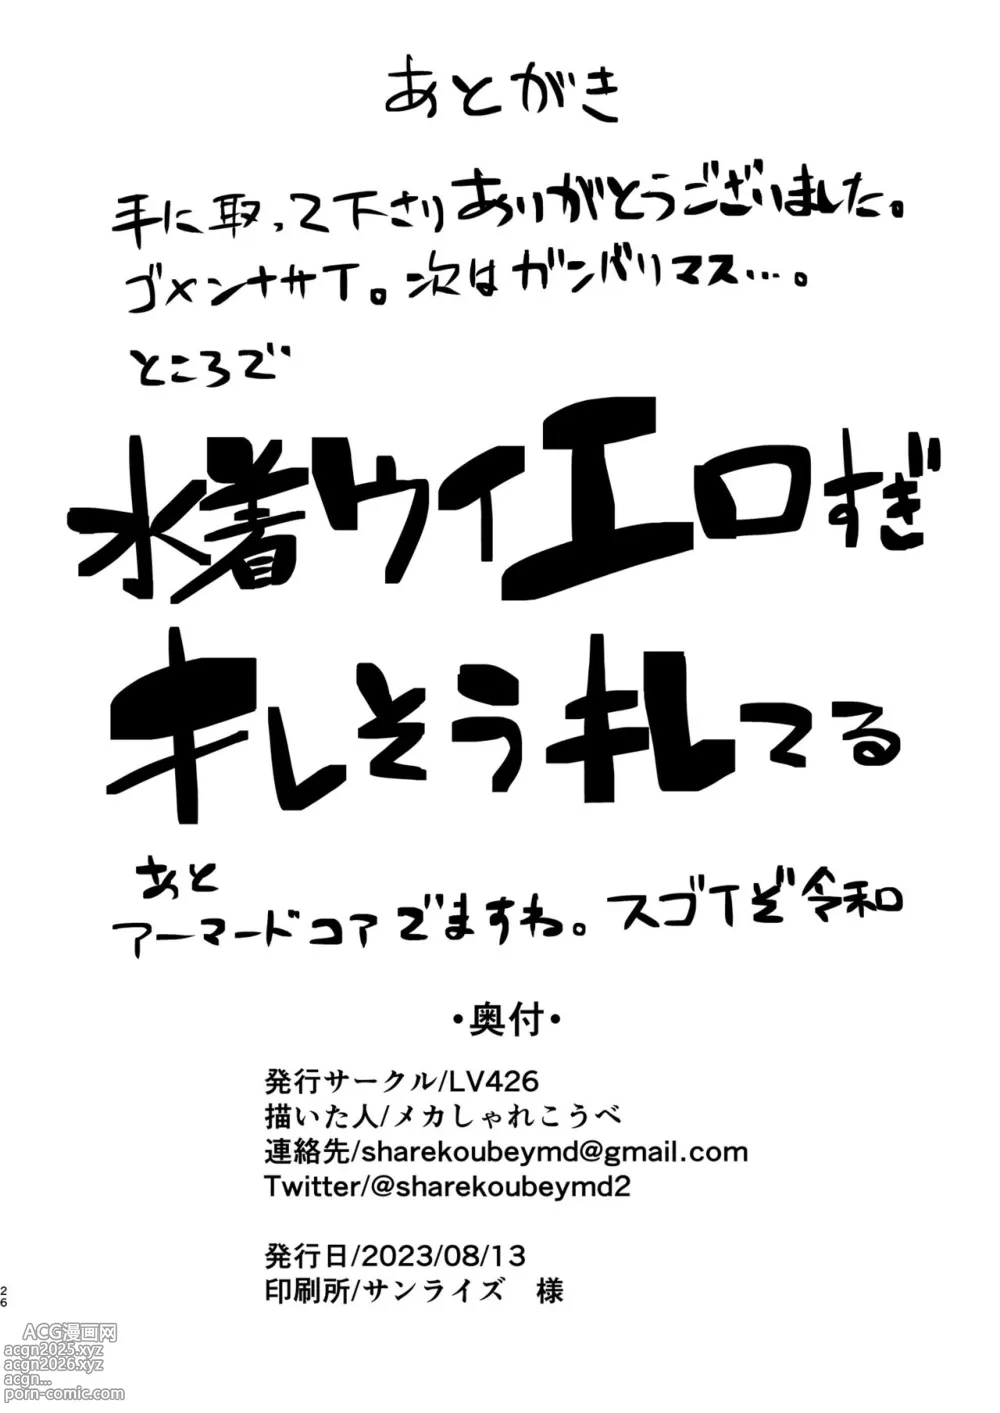 あとがき
手に取って下さりありがとうございました。
ゴメンナサイ。次はガンバリマス…。
ところで
水着ウイエロすぎ
キレそうキレてる
あと
アーマードコアでますね。スゴイぞ令和
・奥付・
発行サークル/LV426
描いた人/メカしゃれこうべ
連絡先/sharekoubeymd@gmail.com
Twitter/@sharekoubeymd2
発行日/2023/08/13
印刷所/サンライズ　様
26
ACG漫画网
acgn2025.xyz
acgn2026.xyz
acgn...
porn-comic.com